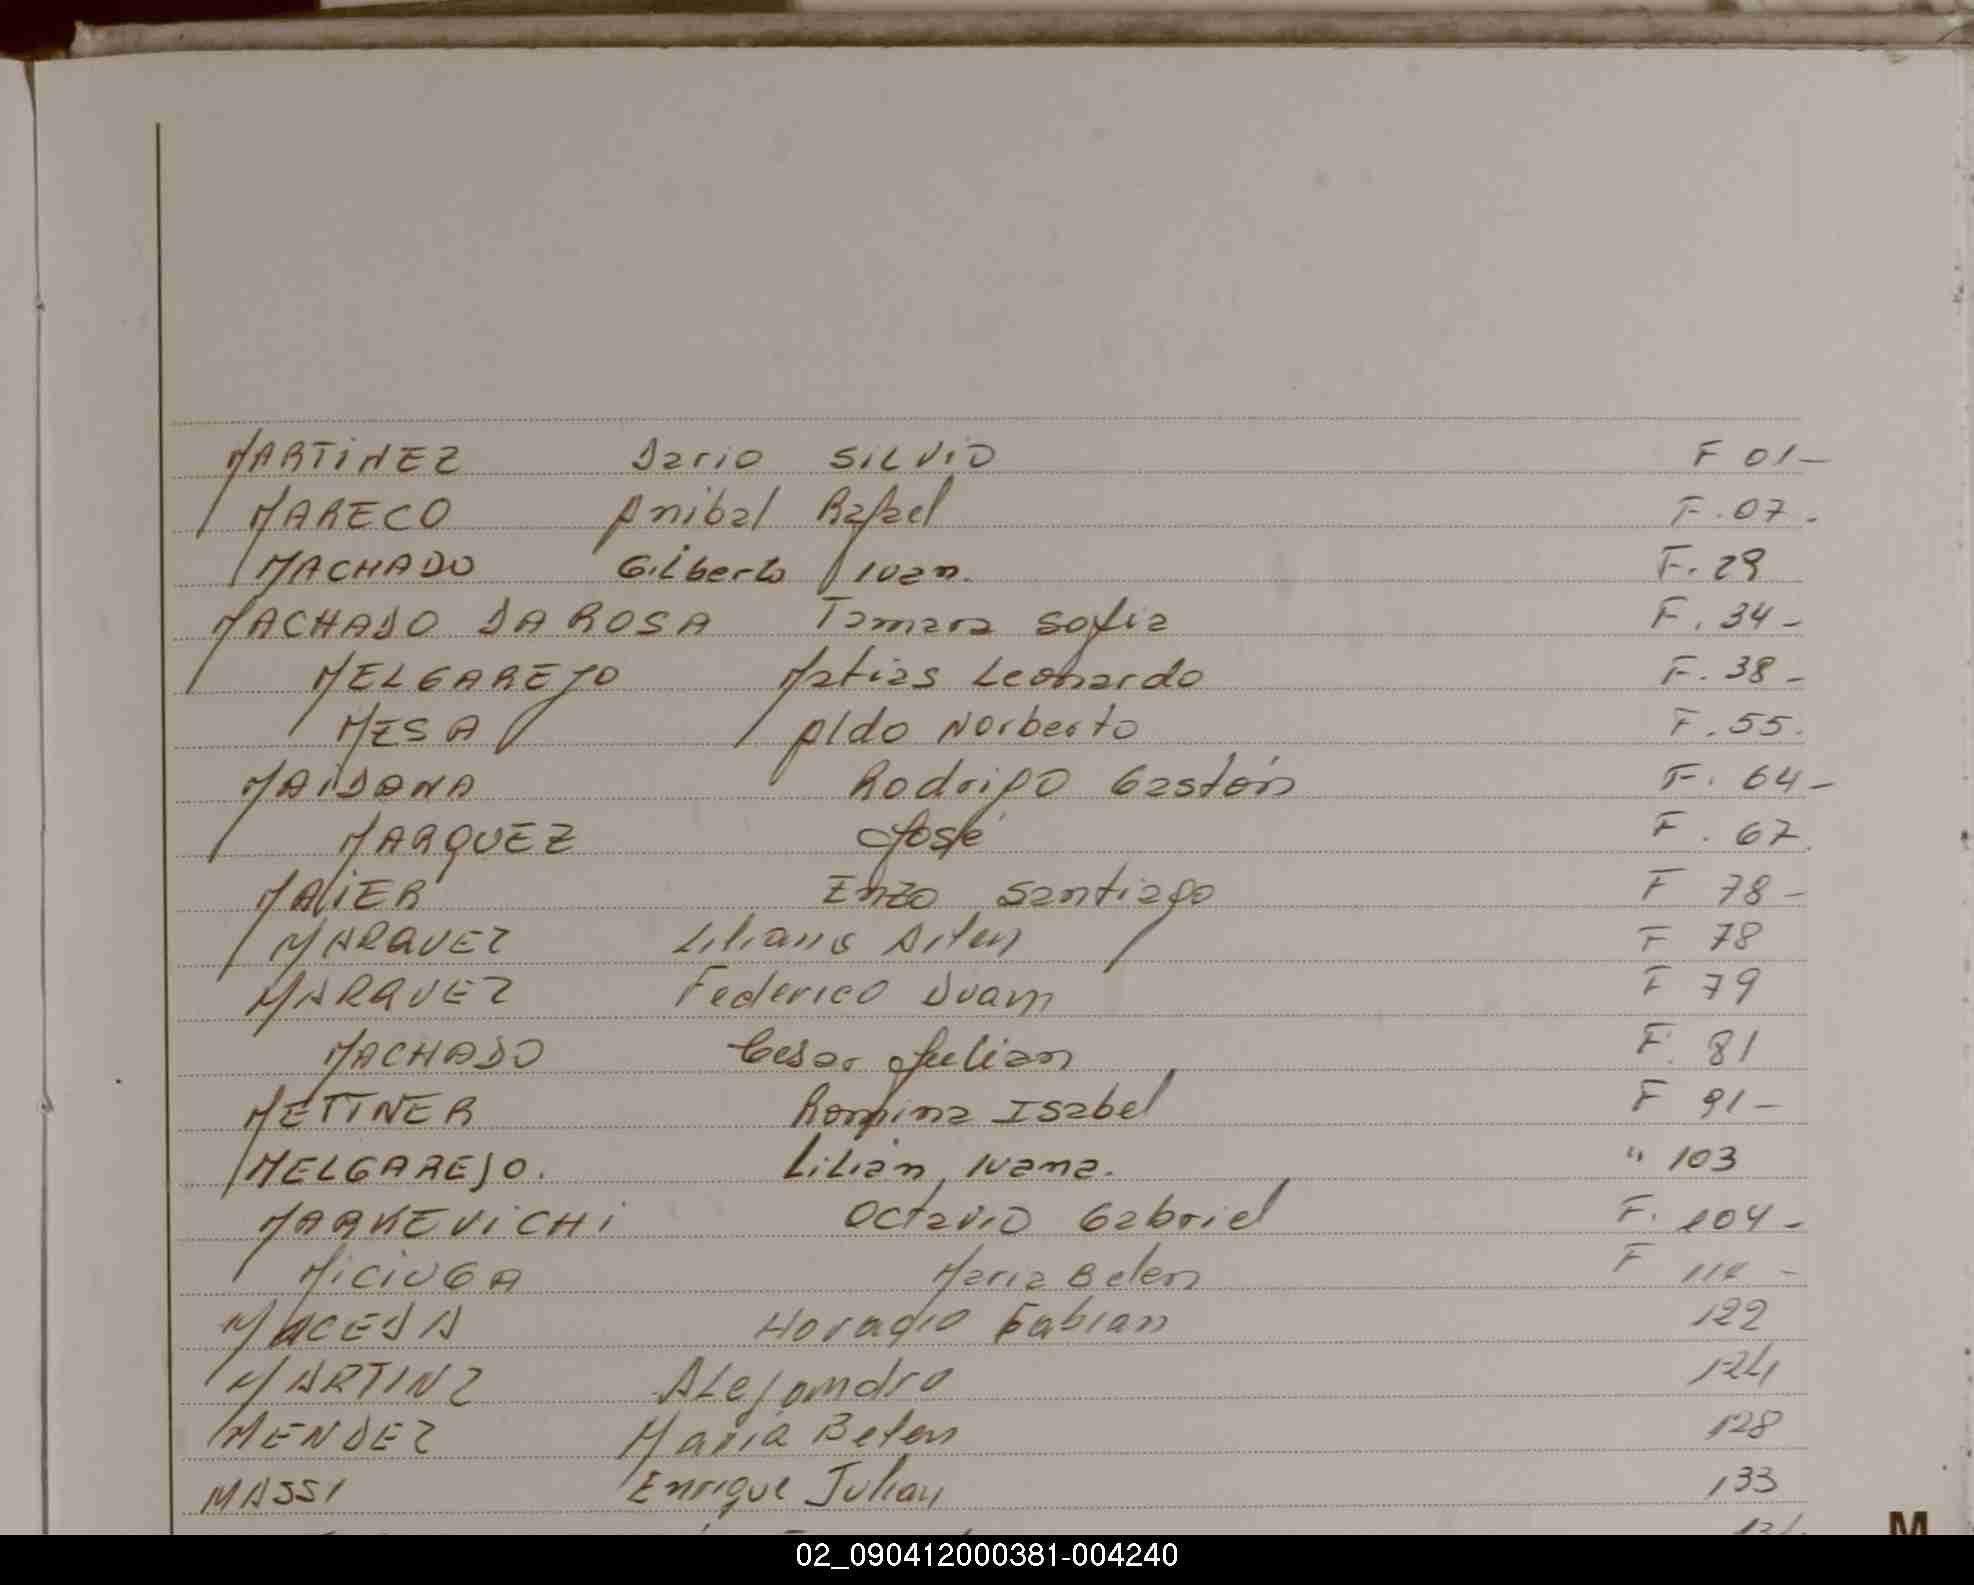 MARTINEZ Dario SILVIO F 01-
MARECO Anibal Rafael F. 07.
MACHADO Gilberto Ivan. F. 29
MACHADO DA ROSA Tamara Sofia F. 34-
MELGAREJO Matias Leonardo F. 38-
MESA Aldo Norberto F. 55.
MAIDANA Rodrigo Gastón F. 64-
MARQUEZ José F. 67.
MAIER Enzo Santiago F 78-
MARQUEZ Liliana F 78
MARQUEZ Federico Juan F 79
MACHADO Cesar Julian F. 81
METTNER Romina Isabel F 91-
MELGAREJO. Lilian Ivana. " 103
MARKEVICHI Octavio Gabriel F. 104-
MICIUGA Maria Belen F
MACEDA Horacio Fabian 122
MARTINZ ALejandro 124
MENDEZ Maria Belen 128
MASSI Enrique Julian 133
M
02_090412000381-004240